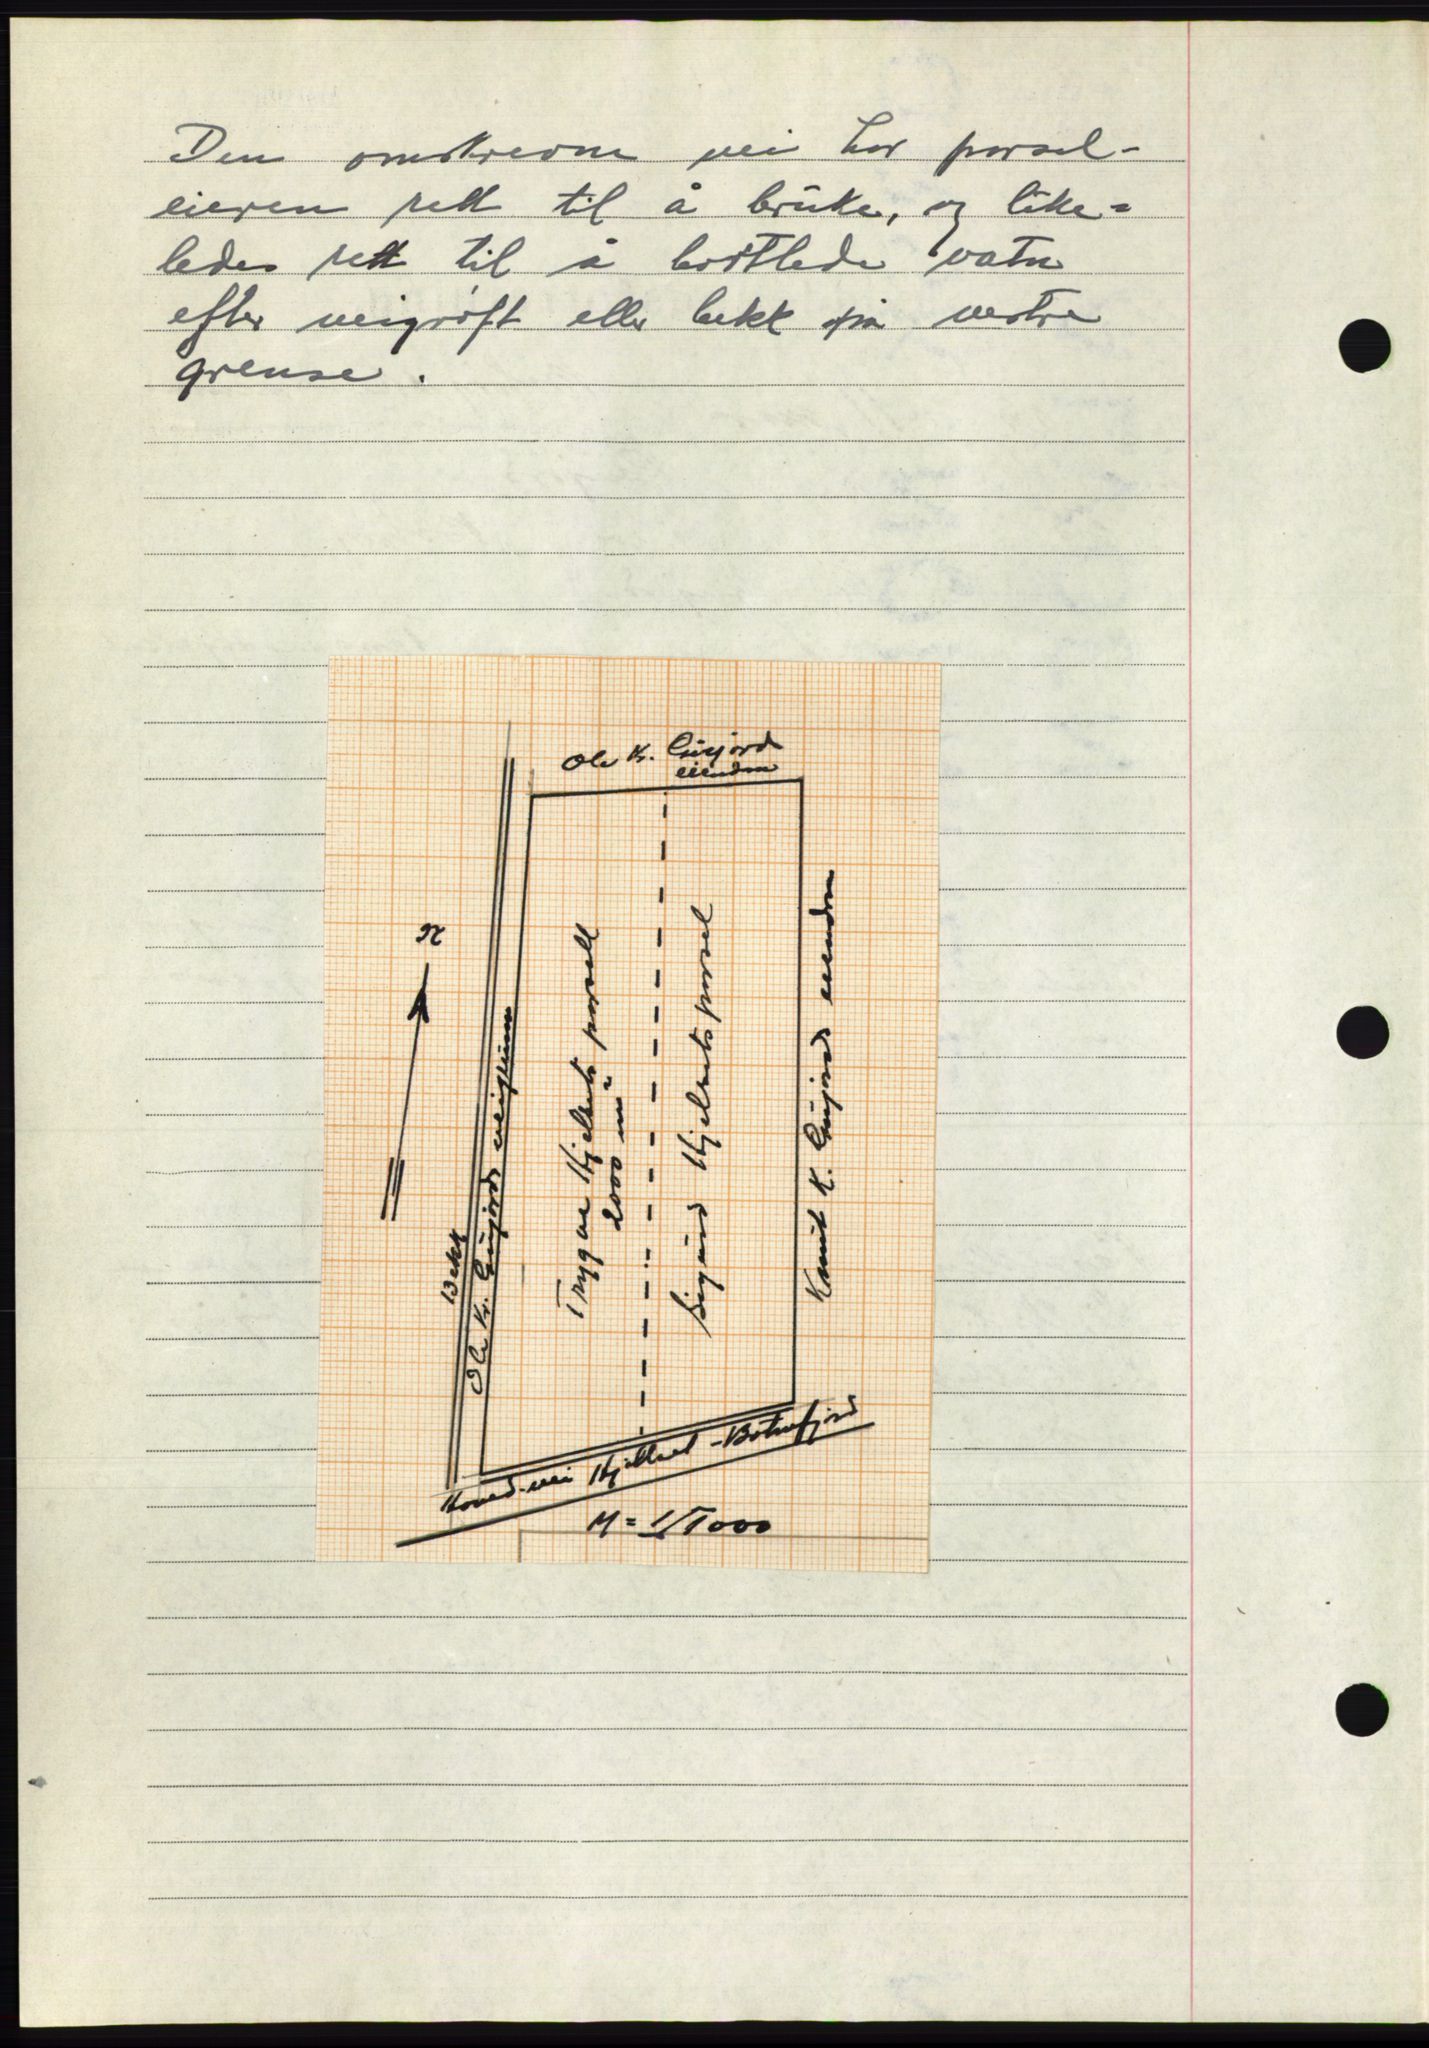 Den omskrevne vei har parsel-
eieren rett til å bruke, og like=
ledes rett til å bortlede vatn
efter veigrøft eller bekk på vestre
grense.
Ole K. Gujord
eiendom
N
Bekk
Ole K. Gujords veigrunn
Trygve Hjelsets parsell
2000 m²
Sigurd Hjelsets parsel
Knut K. Gujords eiendom
Hoved-vei Hjelset - Botnefjord
M = 1/1000